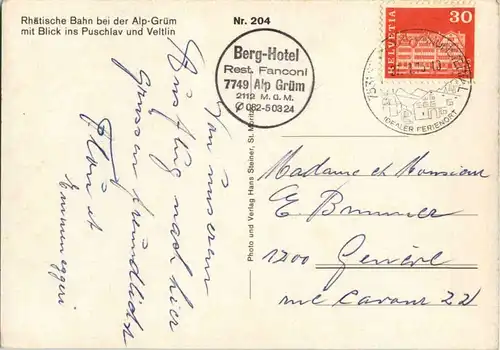 Rhätische Bahn bei der Alp-Grüm
mit Blick ins Puschlav und Veltlin
Nr. 204
Berg-Hotel
Rest. Fanconi
7749 Alp Grüm
2112 M.ü.M.
✆ 082-50324
HELVETIA
30
7531
IDEALER FERIENORT
Photo und Verlag Hans Steiner, St. Moritz
Von unserem
Ausflug nach hier
Grüssen freundlichst
Madame et Monsieur
E. Brunner
1200 Genève